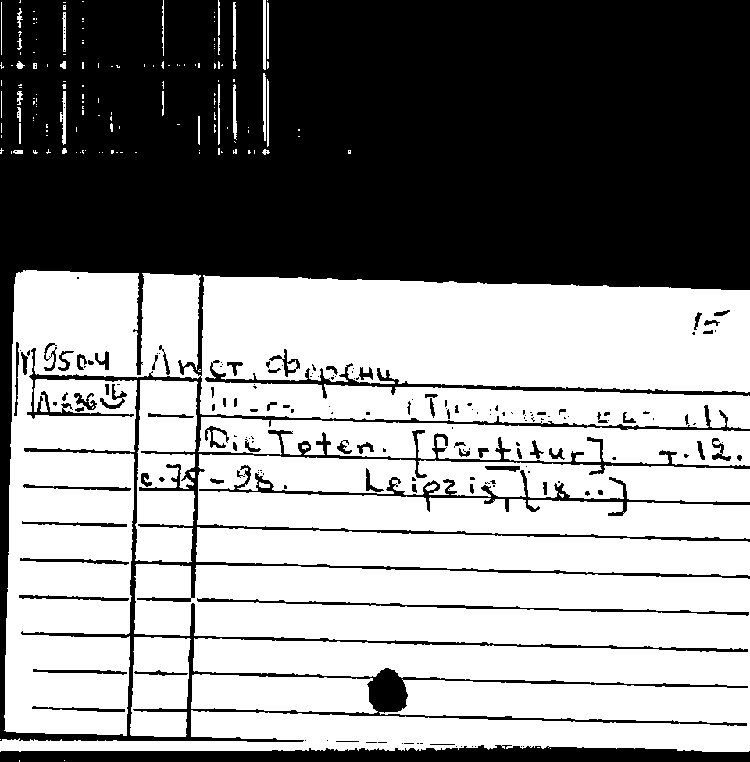 15
950-4 Лист, Ференц
Л-636
Die Toten. [Partitur]. т.12.
с.75-98. Leipzig, [18..]